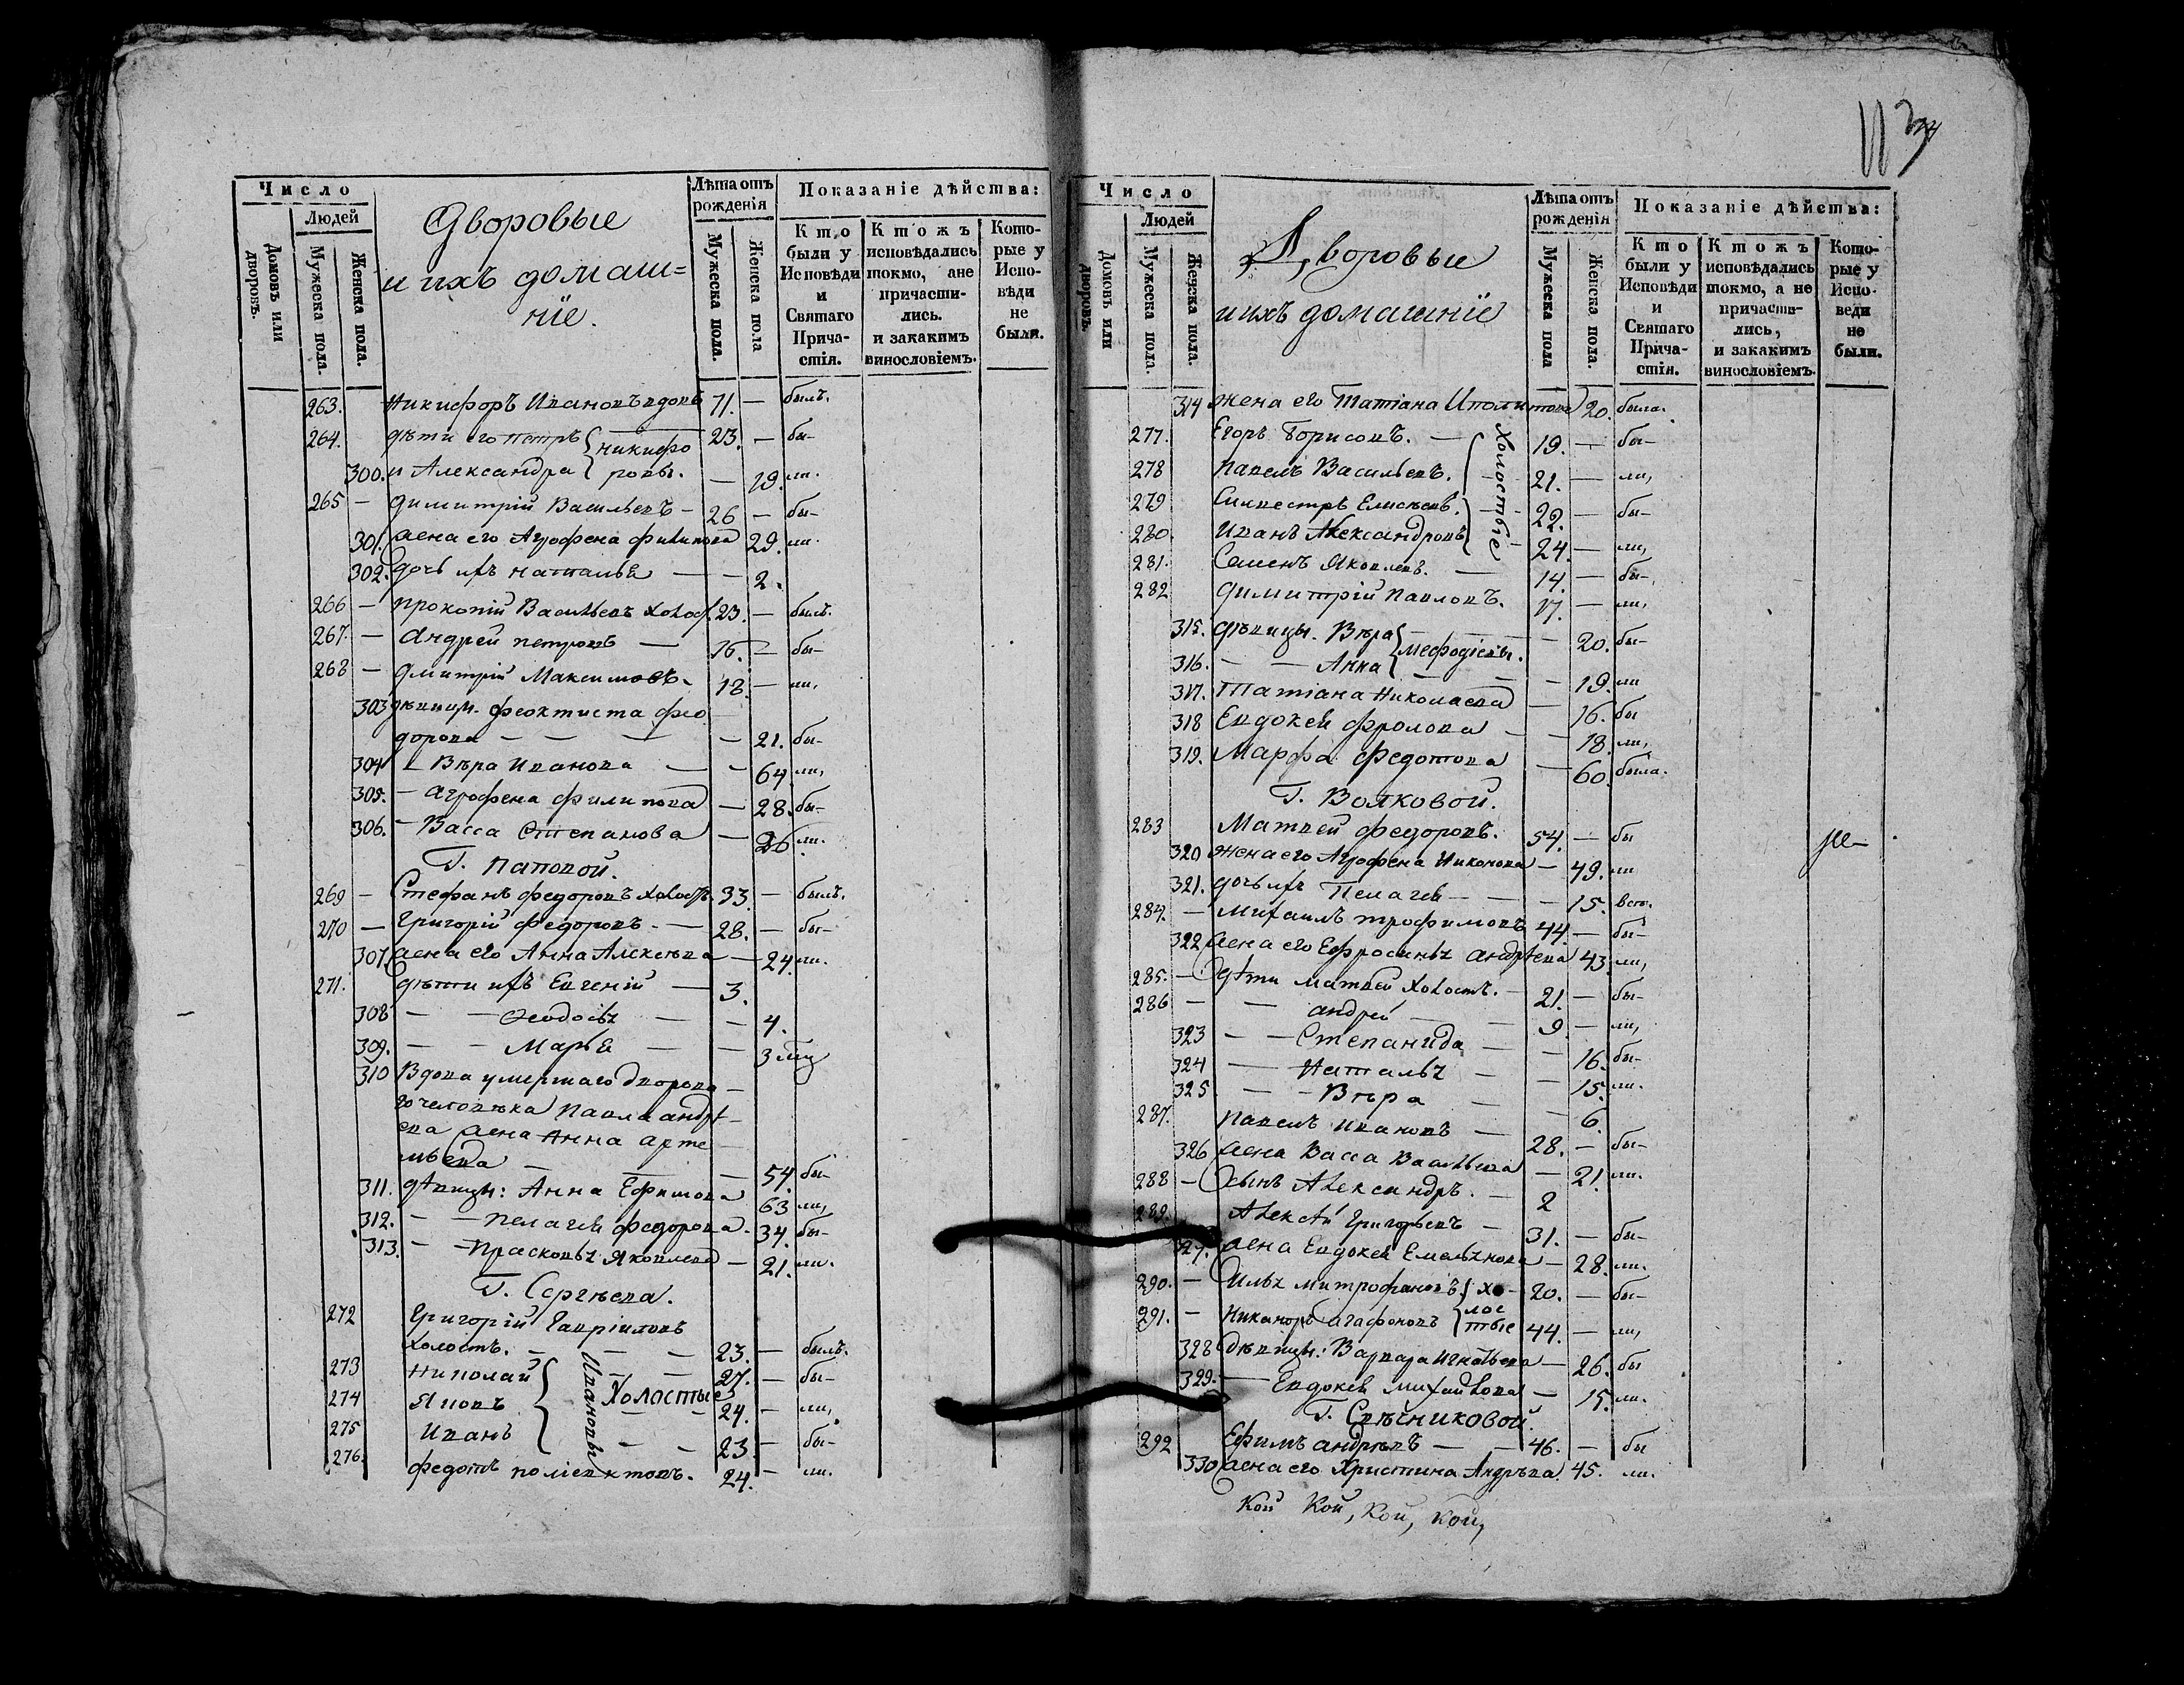 Число
Людей
Домовъ или дворовъ.
Мужеска пола.
Женска пола.
Дворовые
и ихъ домаш=
ніе.
Лѣта отъ рожденія
Мужеска пола.
Женска пола
Показаніе дѣйства:
Кто были у Исповѣди и Святаго Причастія.
Ктожъ исповѣдались токмо, а не причастились. и закакимъ винословіемъ.
Которые у Исповѣди не были.
263. Никифоръ Ивановъ вдовъ 71. — былъ.
264. дѣти его Петръ { Никифо 23. — бы-
300. и Александра { ровы. — 19. ли.
265 — Димитрій Васильевъ — 26 — бы-
301. жена его Агрофена Филипова 29. ли.
302. дочь ихъ Наталья — — 2.
266 — Прокопій Васильевъ холос. 23. — былъ.
267. — Андрей Петровъ — 16. — бы-
268 — Дмитрій Максимовъ — 18. — ли,
303 дѣвицы. Феоктиста Фео
дорова — — — — 21. бы-
304 — Вѣра Иванова — — 64 ли,
305. — Агрофена Филипова — 28. бы-
306. — Васса Степанова — 26 ли.
Г. Паповой.
269 — Стефанъ Федоровъ холост. 33. — былъ.
270 — Григорій Федоровъ. — 28. — бы-
307. жена его Анна Алексѣева — 24. ли.
271. дѣти ихъ Евгеній — 3.
308 — — Феодосья — — 4.
309. — — Марья — — 3 мц
310 Вдова умершаго дворова
го человѣка Павла Андрѣ
ева жена Анна Арте
мьева — — — 54. бы-
311. дѣвицы: Анна Ефимова 63 ли,
312. — — Пелагея Федорова. 34. бы-
313. — — Прасковья Яковлева — 21. ли.
Г. Сергѣева.
272 Григорій Гавріиловъ
холостъ. — — — 23. — былъ.
273 Николай { Ивановы — — 27. — бы-
274 Яковъ Холостые 24. — ли,
275 Иванъ — — 23 — бы-
276. Федотъ Поліевктовъ. 24. — ли.
Число
Людей
Домовъ или дворовъ.
Мужеска пола.
Женска пола.
Дворовые
и ихъ домашніе
Лѣта отъ рожденія
Мужеска пола
Женска пола.
Показаніе дѣйства:
Кто были у Исповѣди и Святаго Причастія.
Ктожъ исповѣдались токмо, а не причастились, и закакимъ винословіемъ.
Которые у Исповеди не были.
314 жена его Татіана Иполитова 20. была.
277. Егоръ Борисовъ. — { Холостые 19. — бы-
278 Павелъ Васильевъ. 21. — ли,
279 Силвестръ Елисеевъ. 22. — бы-
280. Иванъ Александровъ 24. — ли,
281. Семенъ Яковлевъ. — 14. — бы-
282 Димитрій Павловъ. 17. — ли,
315. дѣвицы. Вѣра { Мефодіевы. — 20. бы-
316. — — Анна — 19. ли
317. Татіана Николаева — 16. бы
318 Евдокея Фролова — 18. ли,
319. Марфа Федотова — 60. была.
Г. Волковой.
283 Матвей Федоровъ. 54. — бы
320 жена его Агрофена Никонова — 49. ли
321. дочь ихъ Пелагея — — — 15.
284. — Михаилъ Трофимовъ 44. — бы-
322 жена его Ефросинья Андрѣева 43. ли,
285. — дѣти Матвей холостъ. — 21. — бы-
286 — — Андрей — — 9 — ли,
323 — — Степанида — — 16. бы-
324 — Наталья — — 15. ли.
325 — — Вѣра — — 6.
287. Павелъ Ивановъ — 28. — бы-
326 жена Васса Васильева — 21. ли.
288 — сынъ Александръ. — 2
289. Алексѣй Григорьевъ — 31. — бы-
327. жена Евдокея Емельянова — 28. ли.
290. — Илья Митрофановъ } хо- 20. — бы-
291. — Никаноръ Агафоновъ { лос тые 44. — ли,
328 дѣвицы: Варвара Игнатьева — 26. бы
329. — Евдокея Михайлова — 15. ли.
Г. Свѣчниковой.
292 Ефимъ Андрѣевъ — — 46. — бы
330 жена его Христина Андрѣва. 45. ли.
Кой Кой, Кой, Кой,